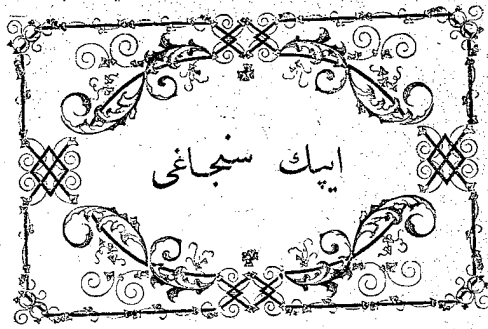 ایپك سنجاغی